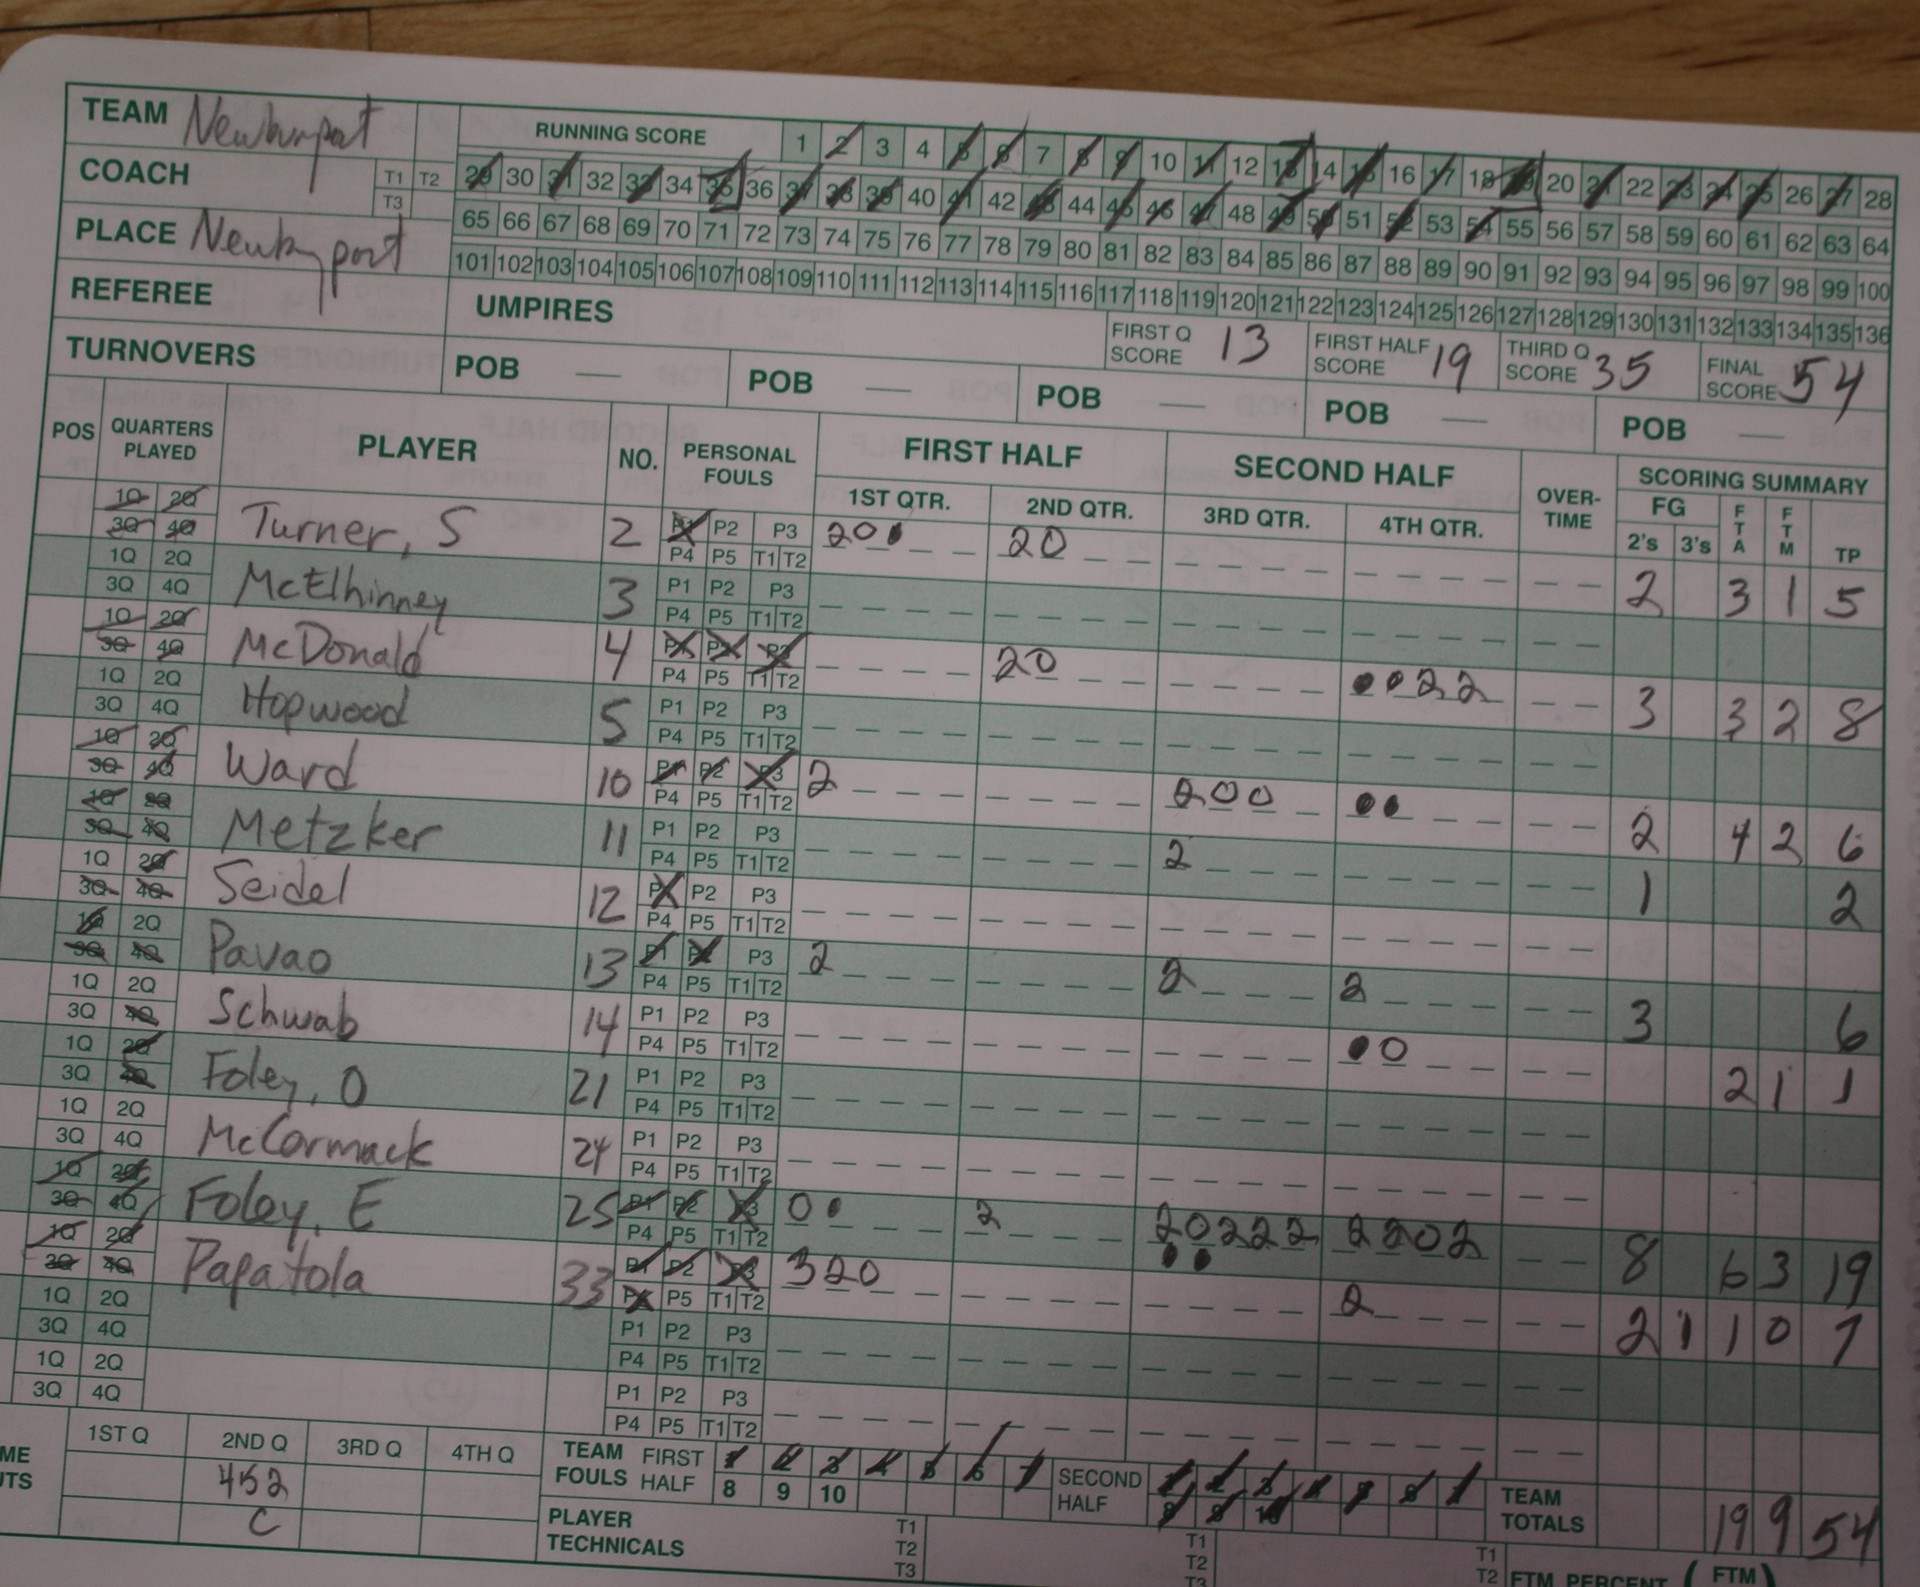 TEAM Newburyport
RUNNING SCORE 1 2 3 4 5 6 7 8 9 10 11 12 13 14 15 16 17 18 19 20 21 22 23 24 25 26 27 28
COACH T1 T2 T3
29 30 31 32 33 34 35 36 37 38 39 40 41 42 43 44 45 46 47 48 49 50 51 52 53 54 55 56 57 58 59 60 61 62 63 64
PLACE Newburyport
65 66 67 68 69 70 71 72 73 74 75 76 77 78 79 80 81 82 83 84 85 86 87 88 89 90 91 92 93 94 95 96 97 98 99 100
101 102 103 104 105 106 107 108 109 110 111 112 113 114 115 116 117 118 119 120 121 122 123 124 125 126 127 128 129 130 131 132 133 134 135 136
REFEREE
UMPIRES
FIRST Q SCORE 13
FIRST HALF SCORE 19
THIRD Q SCORE 35
FINAL SCORE 54
TURNOVERS
POB — POB — POB — POB — POB —
POS QUARTERS PLAYED PLAYER NO. PERSONAL FOULS FIRST HALF SECOND HALF OVER-TIME SCORING SUMMARY
1ST QTR. 2ND QTR. 3RD QTR. 4TH QTR. FG 2's 3's FTA FTM TP
1Q 2Q 3Q 4Q Turner, S 2 P1 P2 P3 P4 P5 T1 T2 20• 20 2 3 1 5
1Q 2Q 3Q 4Q McElhinney 3 P1 P2 P3 P4 P5 T1 T2
1Q 2Q 3Q 4Q McDonald 4 P1 P2 P3 P4 P5 T1 T2 20 ••22 3 3 2 8
1Q 2Q 3Q 4Q Hopwood 5 P1 P2 P3 P4 P5 T1 T2
1Q 2Q 3Q 4Q Ward 10 P1 P2 P3 P4 P5 T1 T2 2 200 •• 2 4 2 6
1Q 2Q 3Q 4Q Metzker 11 P1 P2 P3 P4 P5 T1 T2 2 1 2
1Q 2Q 3Q 4Q Seidel 12 P1 P2 P3 P4 P5 T1 T2
1Q 2Q 3Q 4Q Pavao 13 P1 P2 P3 P4 P5 T1 T2 2 2 2 3 6
1Q 2Q 3Q 4Q Schwab 14 P1 P2 P3 P4 P5 T1 T2 •0 2 1 1
1Q 2Q 3Q 4Q Foley, O 21 P1 P2 P3 P4 P5 T1 T2
1Q 2Q 3Q 4Q McCormack 24 P1 P2 P3 P4 P5 T1 T2
1Q 2Q 3Q 4Q Foley, E 25 P1 P2 P3 P4 P5 T1 T2 0• 2 20222•• 2202 8 6 3 19
1Q 2Q 3Q 4Q Papatola 33 P1 P2 P3 P4 P5 T1 T2 320 2 2 1 1 0 7
1Q 2Q 3Q 4Q P1 P2 P3 P4 P5 T1 T2
1Q 2Q 3Q 4Q P1 P2 P3 P4 P5 T1 T2
1ST Q 2ND Q 3RD Q 4TH Q
452
C
TEAM FOULS FIRST HALF 1 2 3 4 5 6 7 8 9 10
SECOND HALF 1 2 3 4 5 6 7 8 9 10
TEAM TOTALS 19 9 54
PLAYER TECHNICALS T1 T2 T3 T1 T2 T3 T1 T2
FTM PERCENT (FTM)